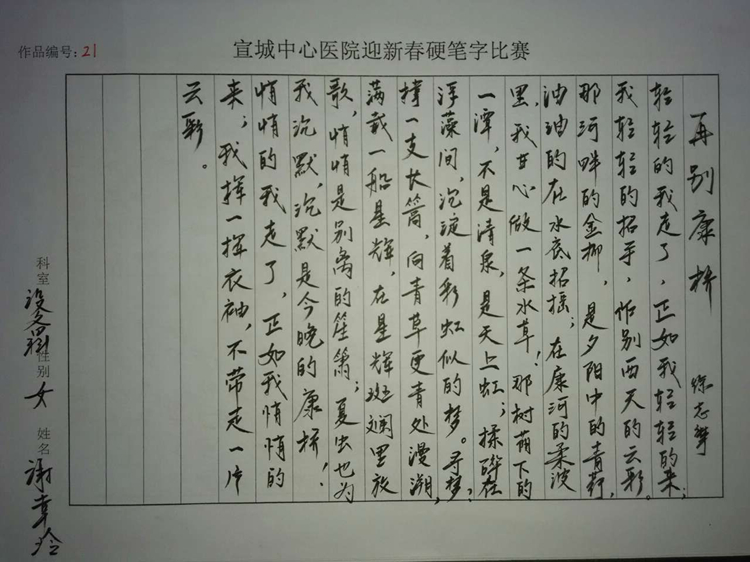 宣城中心医院迎新春硬笔字比赛
作品编号：21
再别康桥 徐志摩
轻轻的我走了，正如我轻轻的来；
我轻轻的招手，作别西天的云彩。
那河畔的金柳，是夕阳中的青荇，
油油的在水底招摇；在康河的柔波
里，我甘心做一条水草！那树荫下的
一潭，不是清泉，是天上虹；揉碎在
浮藻间，沉淀着彩虹似的梦。寻梦？
撑一支长篙，向青草更青处漫溯，
满载一船星辉，在星辉斑斓里放
歌，悄悄是别离的笙箫；夏虫也为
我沉默，沉默是今晚的康桥！
悄悄的我走了，正如我悄悄的
来；我挥一挥衣袖，不带走一片
云彩。
科室 设备科 性别 女 姓名 谢